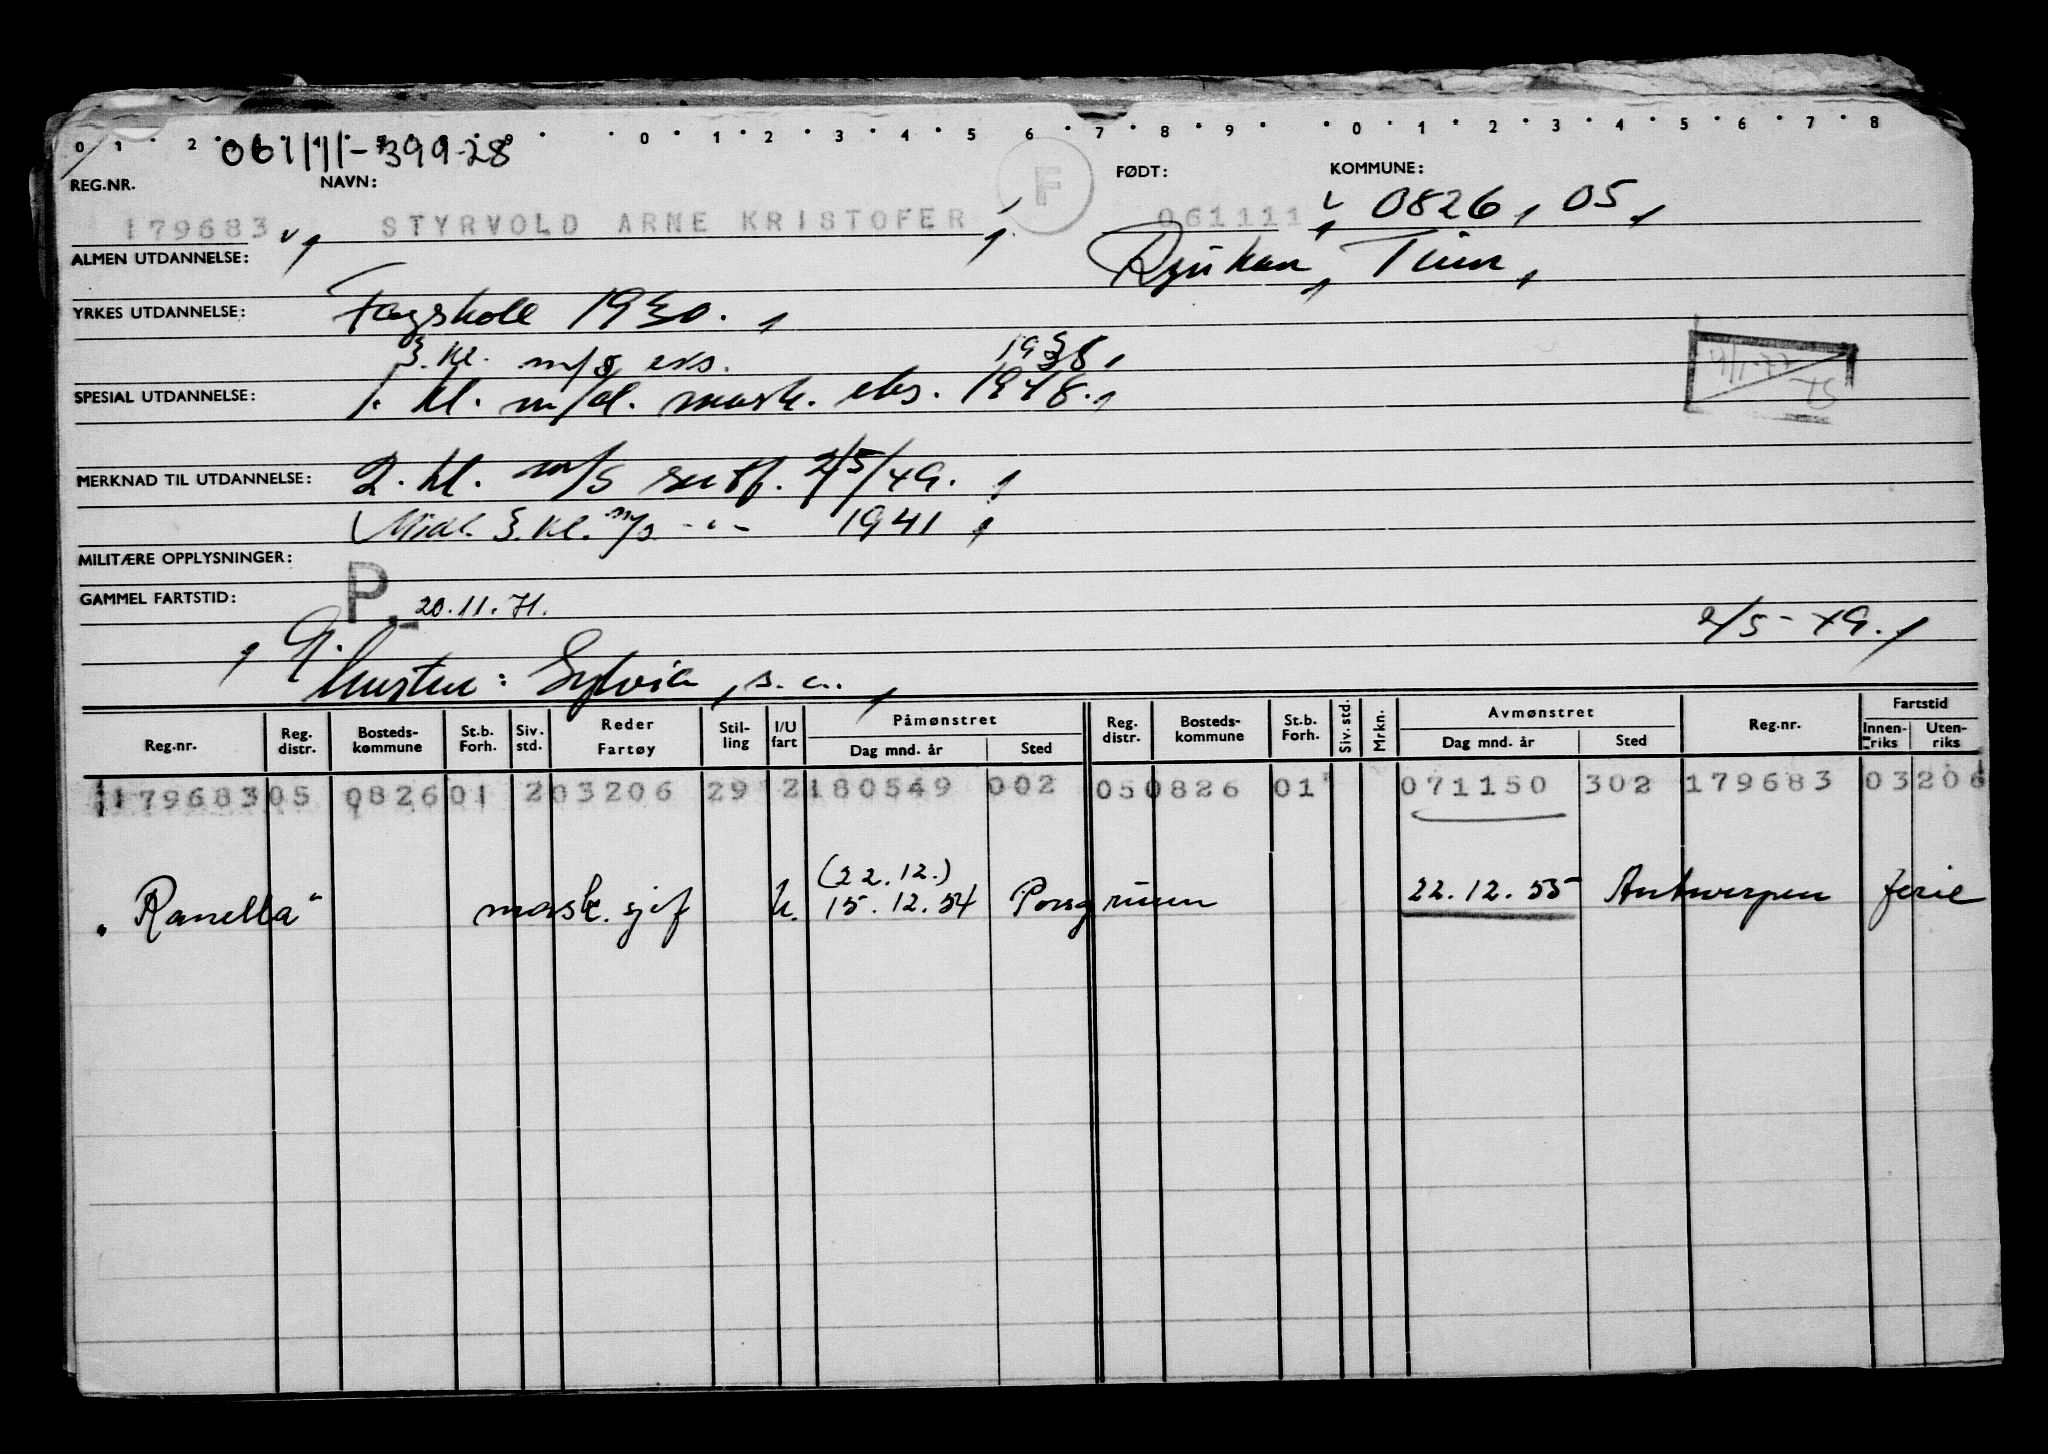 0 1 2 9 0 1 2 3 4 5 6 7 8 9 0 1 2 3 4 5 6 7 8
061111-39928
REG.NR. NAVN: F FØDT: KOMMUNE:
179683 STYRVOLD ARNE KRISTOFER 061111 0826, 05,
ALMEN UTDANNELSE: Rjukan, Tinn,
YRKES UTDANNELSE: Fagskole 1930.,
3. kl. m/s eks. 1938,
SPESIAL UTDANNELSE: 1. kl. m/al. mask. eks. 1948.,
TS
MERKNAD TIL UTDANNELSE: 2. kl. m/s sert. 2/5/49. ,
Midl. 3. kl. m/s -"- 1941 ,
MILITÆRE OPPLYSNINGER:
GAMMEL FARTSTID: P. 20.11.71.
, G. 2/5-49.,
Hustru: Sylvia, s.a.,
Reg.nr. Reg. distr. Bosteds-kommune St.b. Forh. Siv. std. Reder Fartøy Stil-ling I/U fart Påmønstret Dag mnd. år Sted Reg. distr. Bosteds-kommune St.b. Forh. Siv. std. Mrkn. Avmønstret Dag mnd. år Sted Reg.nr. Fartstid Innen-riks Uten-riks
179683 05 0826 01 2 03206 29 2 180549 002 05 0826 01 071150 302 179683 03 206
(22.12.)
"Ranella" mask. sjef U. 15.12.54 Porsgrunn 22.12.55 Antwerpen ferie